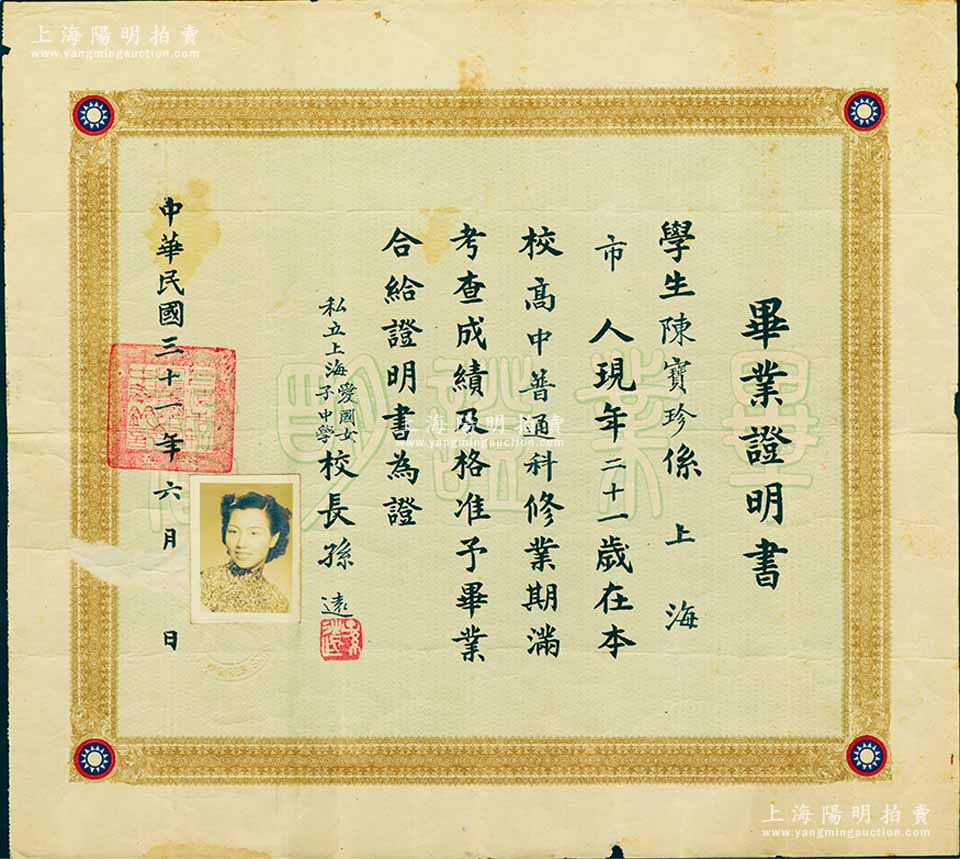 上海陽明拍賣
www.yangmingauction.com
畢業證明書
學生陳寶珍係上海
市人現年二十一歲在本
校高中普通科修業期滿
考查成績及格准予畢業
合給證明書為證
私立上海愛國女子中學校長孫遠
中華民國三十一年六月日
畢業證明
上海陽明拍賣
www.yangmingauction.com
上海陽明拍賣
www.yangmingauction.com